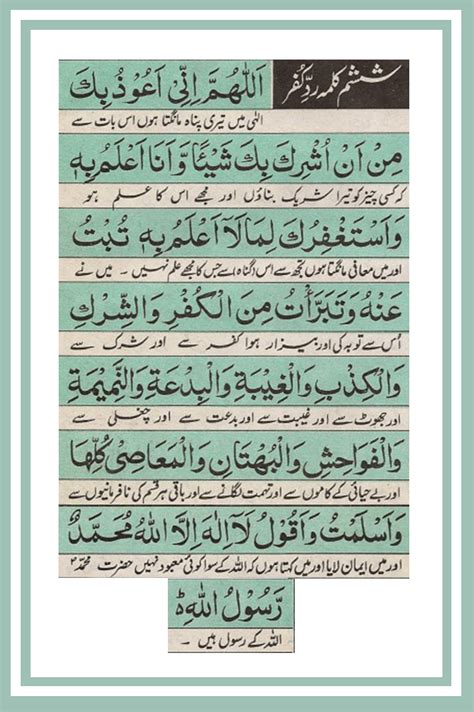 ششم کلمہ ردِّ کفر
اَللّٰهُمَّ اِنِّیْ اَعُوْذُ بِكَ
الٰہی میں تیری پناہ مانگتا ہوں اس بات سے
مِنْ اَنْ اُشْرِكَ بِكَ شَیْئًا وَّاَنَا اَعْلَمُ بِهٖ
کہ کسی چیز کو تیرا شریک بناؤں اور مجھے اس کا علم ہو
وَاَسْتَغْفِرُكَ لِمَالَآ اَعْلَمُ بِهٖ تُبْتُ
اور میں معافی مانگتا ہوں تجھ سے اس (گناہ) سے جس کا مجھے علم نہیں ۔ میں نے
عَنْهُ وَتَبَرَّأْتُ مِنَ الْكُفْرِ وَالشِّرْكِ
اُس سے توبہ کی اور بیزار ہوا کفر سے اور شرک سے
وَالْكِذْبِ وَالْغِیْبَةِ وَالْبِدْعَةِ وَالنَّمِیْمَةِ
اور جھوٹ سے اور غیبت سے اور بدعت سے اور چغلی سے
وَالْفَوَاحِشِ وَالْبُهْتَانِ وَالْمَعَاصِیْ كُلِّهَا
اور بے حیائی کے کاموں سے اور تہمت لگانے سے اور باقی ہر قسم کی نافرمانیوں سے
وَاَسْلَمْتُ وَاَقُوْلُ لَآ اِلٰهَ اِلَّا اللّٰهُ مُحَمَّدٌ
اور میں ایمان لایا اور میں کہتا ہوں کہ اللہ کے سوا کوئی معبود نہیں حضرت محمدؐ
رَّسُوْلُ اللّٰهِ ؕ
اللہ کے رسول ہیں ۔